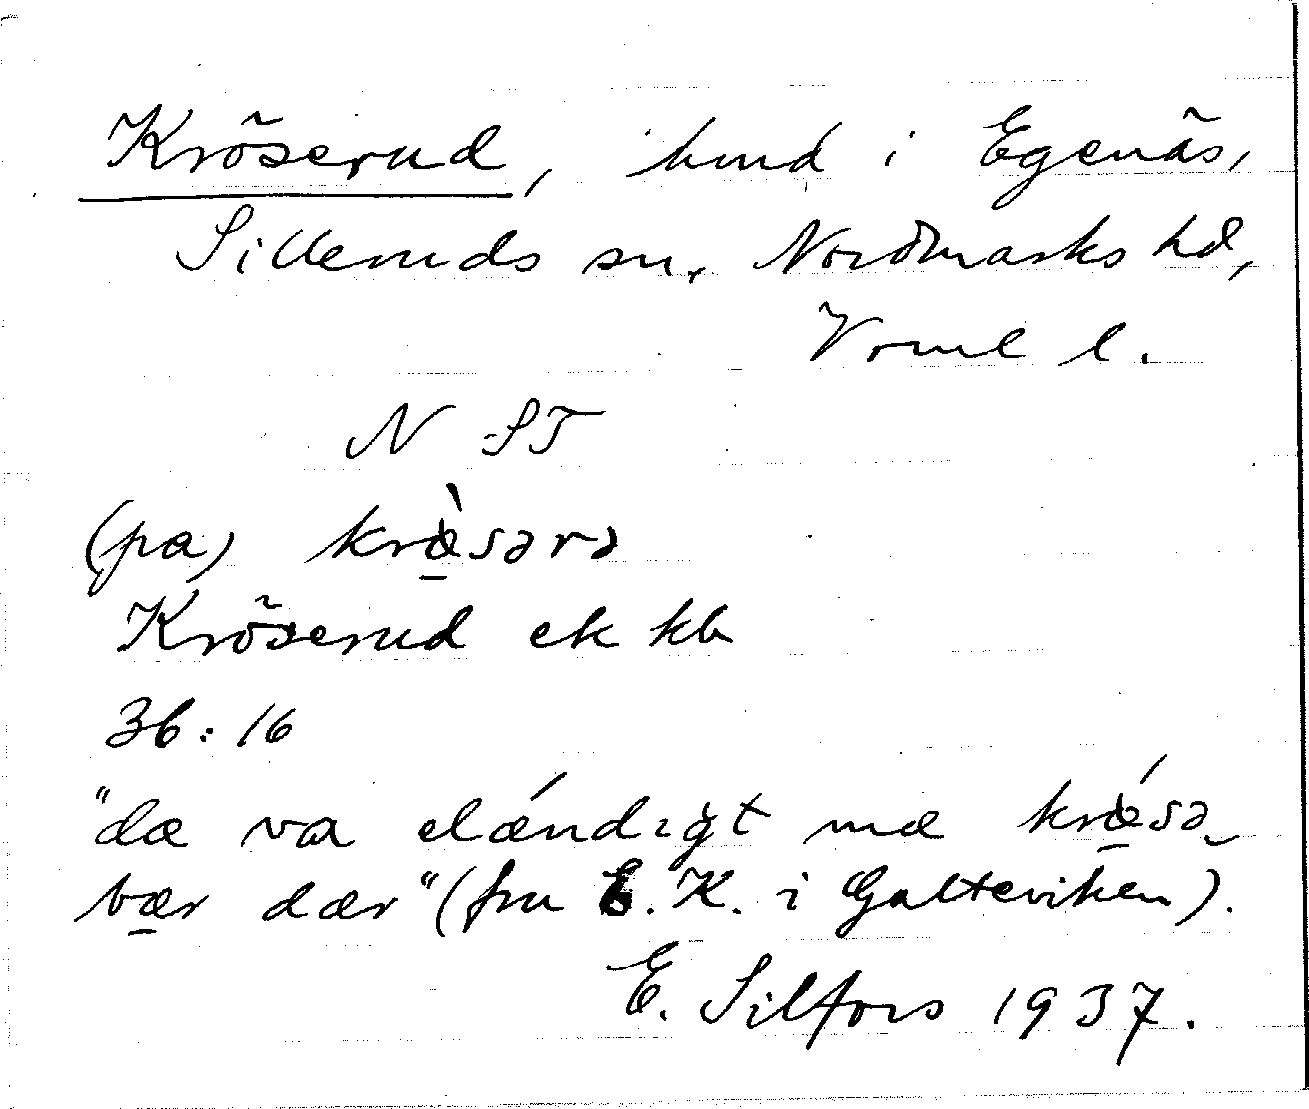 Kröserud, hmd i Egenäs,
Silleruds sn, Nordmarks hd,
Verml l.
N ST
(pa) kræ̀sərə
Kröserud ek kb
36:16
"dæ va elǽndigt mæ krǽsə
bær dær" (fru E. K. i Galteviken).
E. Silfors 1937.